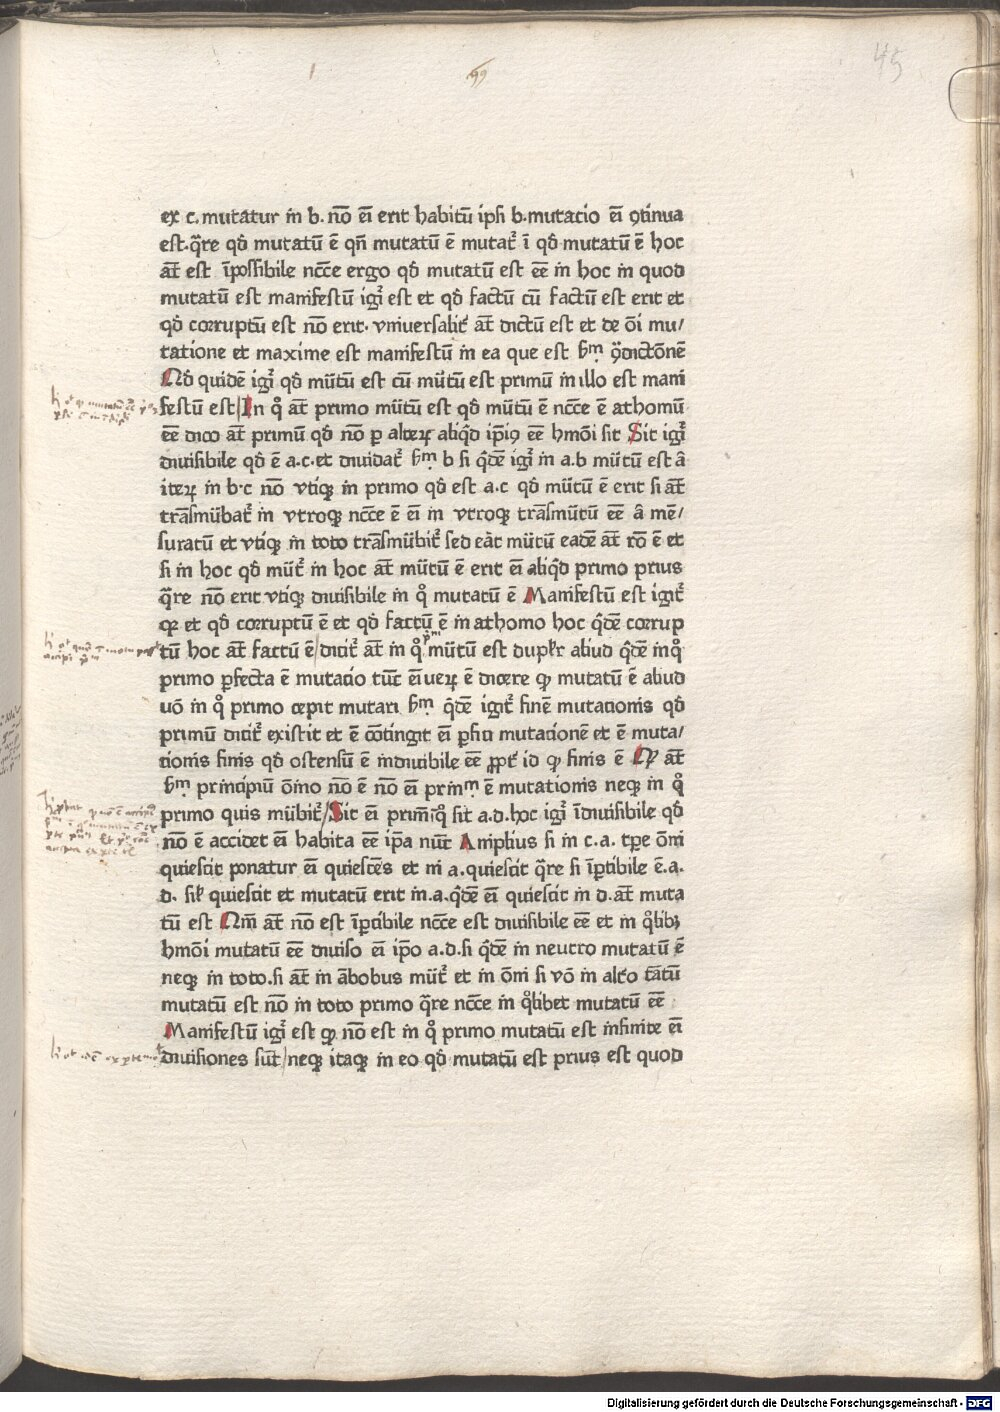 45
99
ex c. mutatur in b. nō ēi erit habitū ipsi b. mutacio ēi ꝯtinua
est. q̄re qđ mutatū ē qn̄ mutatū ē mutat᷑ ī qđ mutatū ē hoc
āt est īpossibile ncc̄e ergo qđ mutatū est ēe in hoc in quod
mutatū est manifestū igī est et qđ factū cū factū est erit et
qđ corruptū est nō erit. vniuersalit᷑ āt dictū est et de ōi mu/
tatione et maxime est manifestū in ea que est ẜm ꝯ̄dictōnē
Qđ quidē igī qđ mūtū est cū mūtū est primū in illo est mani
festū est In qͦ āt primo mūtū est qđ mūtū ē ncc̄e ē athomū
ēe dico āt primū qđ nō ꝑ alteꝝ aliqđ ip̄iꝰ ēe hmōi sit Sit igī
diuisibile qđ ē a.c. et diuidat᷑ ẜm b si q̄dē igī in a.b mūtū est ā
iteꝝ in b.c nō vtiqꝫ in primo qđ est a.c qđ mūtū ē erit si āt
trāsmūbat᷑ in vtroqꝫ ncc̄e ē ēi in vtroqꝫ trāsmūtū ēe ā mē/
suratū et vtiqꝫ in toto trāsmūbit᷑ sed eāt mūtū eadē āt rō ē et
si in hoc qđ mūt᷑ in hoc āt mūtū ē erit ēi aliqđ primo prius
q̄re nō erit vtiqꝫ diuisibile in qͦ mutatū ē Manifestū est igit᷑
qꝫ et qđ corruptū ē et qđ factū ē in athomo hoc q̄dē corrup
tū hoc āt factū ē dicit᷑ āt in qͦ mūtū est duplr aliud q̄dē in qͦ
primo ꝑfecta ē mutacio tūc ēi ueꝝ ē dicere qꝫ mutatū ē aliud
uō in qͦ primo cepit mutari ẜm q̄dē igit᷑ finē mutationis qđ
primū dicit᷑ existit et ē cōtingit ēi ꝑfici mutacionē et ē muta/
tionis finis qđ ostensū ē indiuibile ēe ꝓpt᷑ id qꝫ finis ē Qꝫ āt
ẜm principiū ōino nō ē nō ēi prinm ē mutationis neqꝫ in qͦ
primo quis mūbit᷑ Sit ēi prim̄ īqͦ sit a.d. hoc igī īdiuisibile qđ
nō ē accidet ēi habita ēe ip̄a nūc Amplius si in c.a. tꝑe ōni
quiescit ponatur ēi quiescēs et in a. quiescit q̄re si īꝑtibile ē. a.
d. sił quiescit et mutatū erit in. a. q̄dē ēi quiescit in d. āt muta
tū est Qm̄ āt nō est īꝑtibile ncc̄e est diuisibile ēe et in qͦlibꝫ
hmōi mutatū ēe diuiso ēi ip̄o a.d. si q̄dē in neutro mutatū ē
neqꝫ in toto. si āt in ābobus mūt᷑ et in ōni si vō in alt᷑o tātū
mutatū est nō in toto primo q̄re ncc̄e in qͦlibet mutatū ēe
Manifestū igī est qꝫ nō est in qͦ primo mutatū est infinite ēi
diuisiones sūt neqꝫ itaqꝫ in eo qđ mutatū est prius est quod
Digitalisierung gefördert durch die Deutsche Forschungsgemeinschaft - DFG